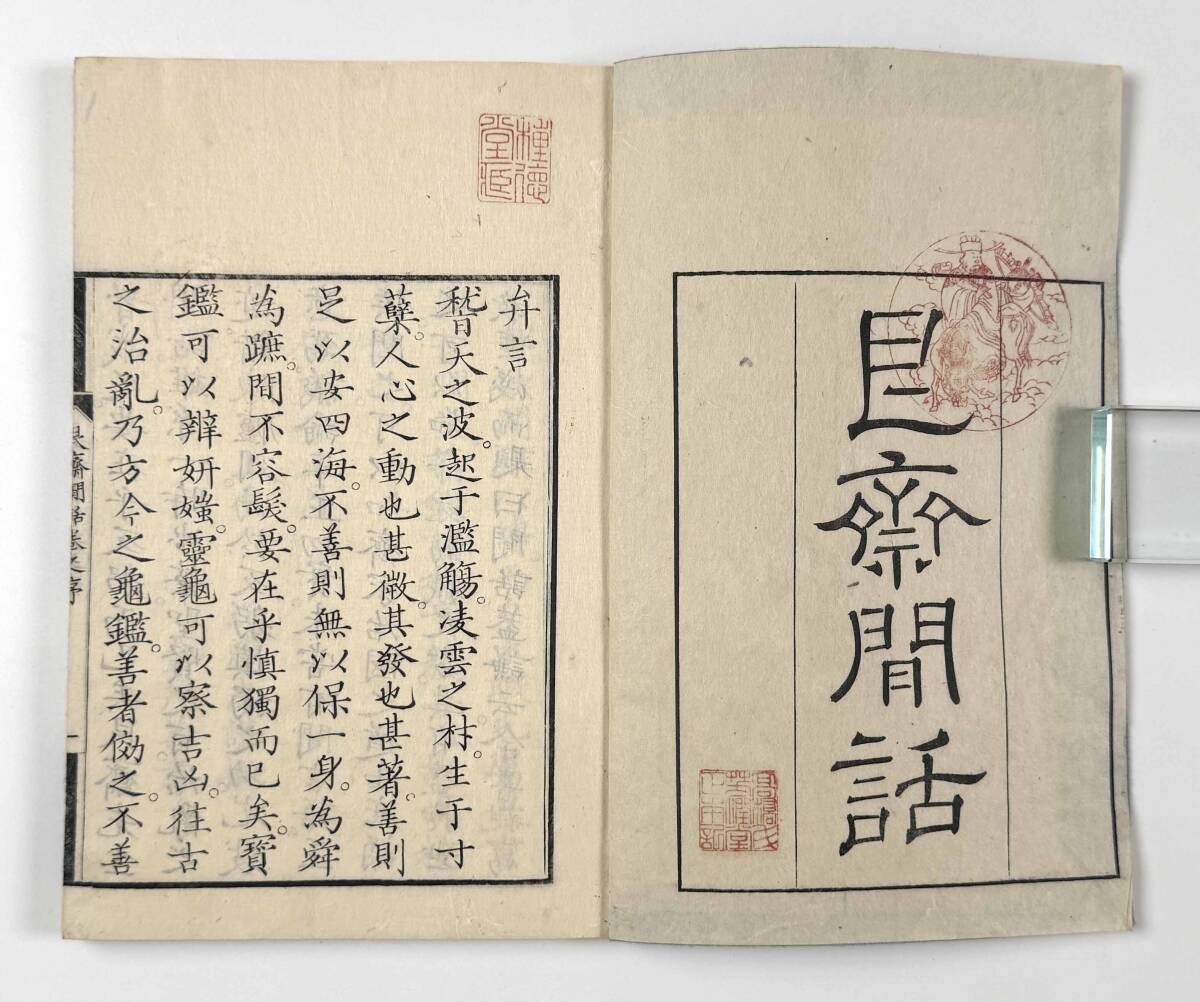 艮齋閒話
種德
堂
弁言
稽天之波。起于濫觴。凌雲之材。生于寸
蘖。人心之動也甚微。其發也甚著。善則
足以安四海。不善則無以保一身。為舜
為蹠。間不容髮。要在乎慎獨而已矣。寶
鑑可以辨妍媸。靈龜可以察吉凶。往古
之治亂。乃方今之龜鑑。善者傚之。不善
艮齋閒話卷之序
一